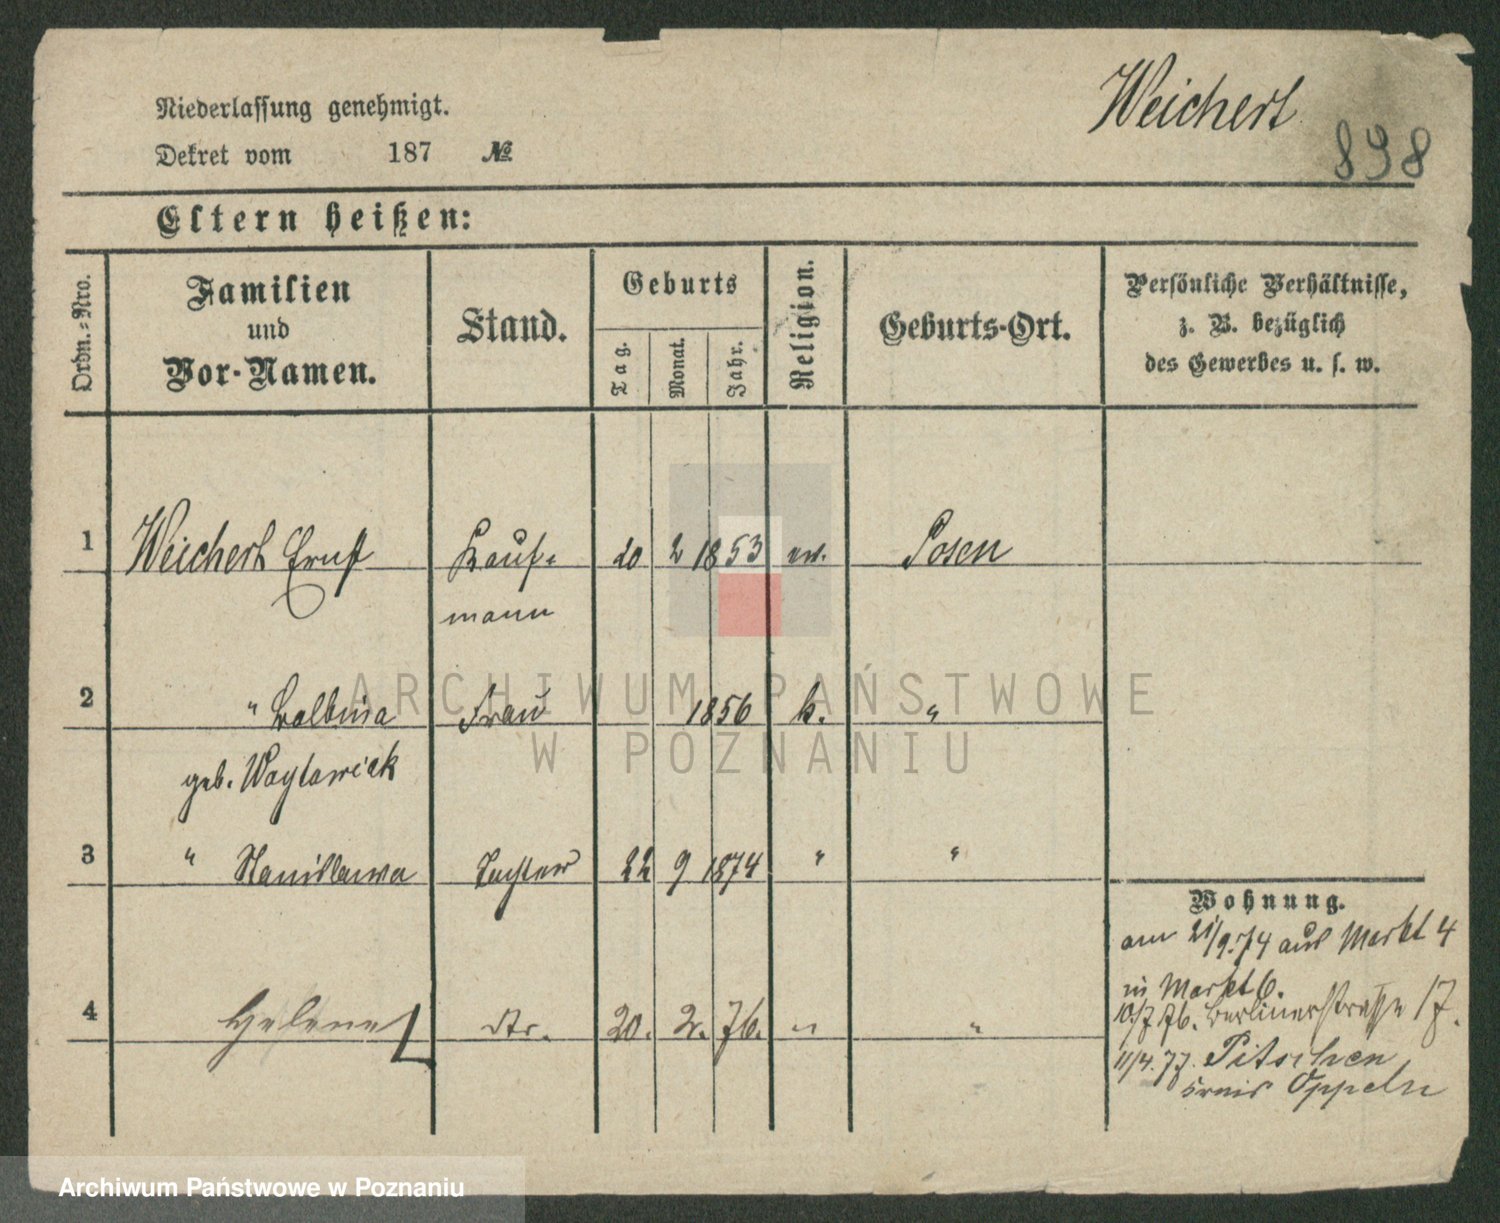 Weichert
898
Niederlassung genehmigt.
Dekret vom 187 №
Eltern heißen:
Ordn.-Nro.
Familien und Vor-Namen.
Stand.
Geburts
Tag.
Monat.
Jahr.
Religion.
Geburts-Ort.
Persönliche Verhältnisse,
z. B. bezüglich
des Gewerbes u. s. w.
1 Weichert Ernst Kauf- 20 2 1853 ev. Posen
mann
2 " Balbina Frau 1856 k. "
geb. Woytawiak
3 " Stanislawa Tochter 22 9 1874 " "
4 Helene dto. 20. 2. 76. " "
Wohnung.
am 21/9.74 aus Markt 4
in Markt 6.
10/7 76. Berlinerstrasse 17.
11/4.77. Pitschen
Kreis Oppeln
ARCHIWUM PAŃSTWOWE
W POZNANIU
Archiwum Państwowe w Poznaniu